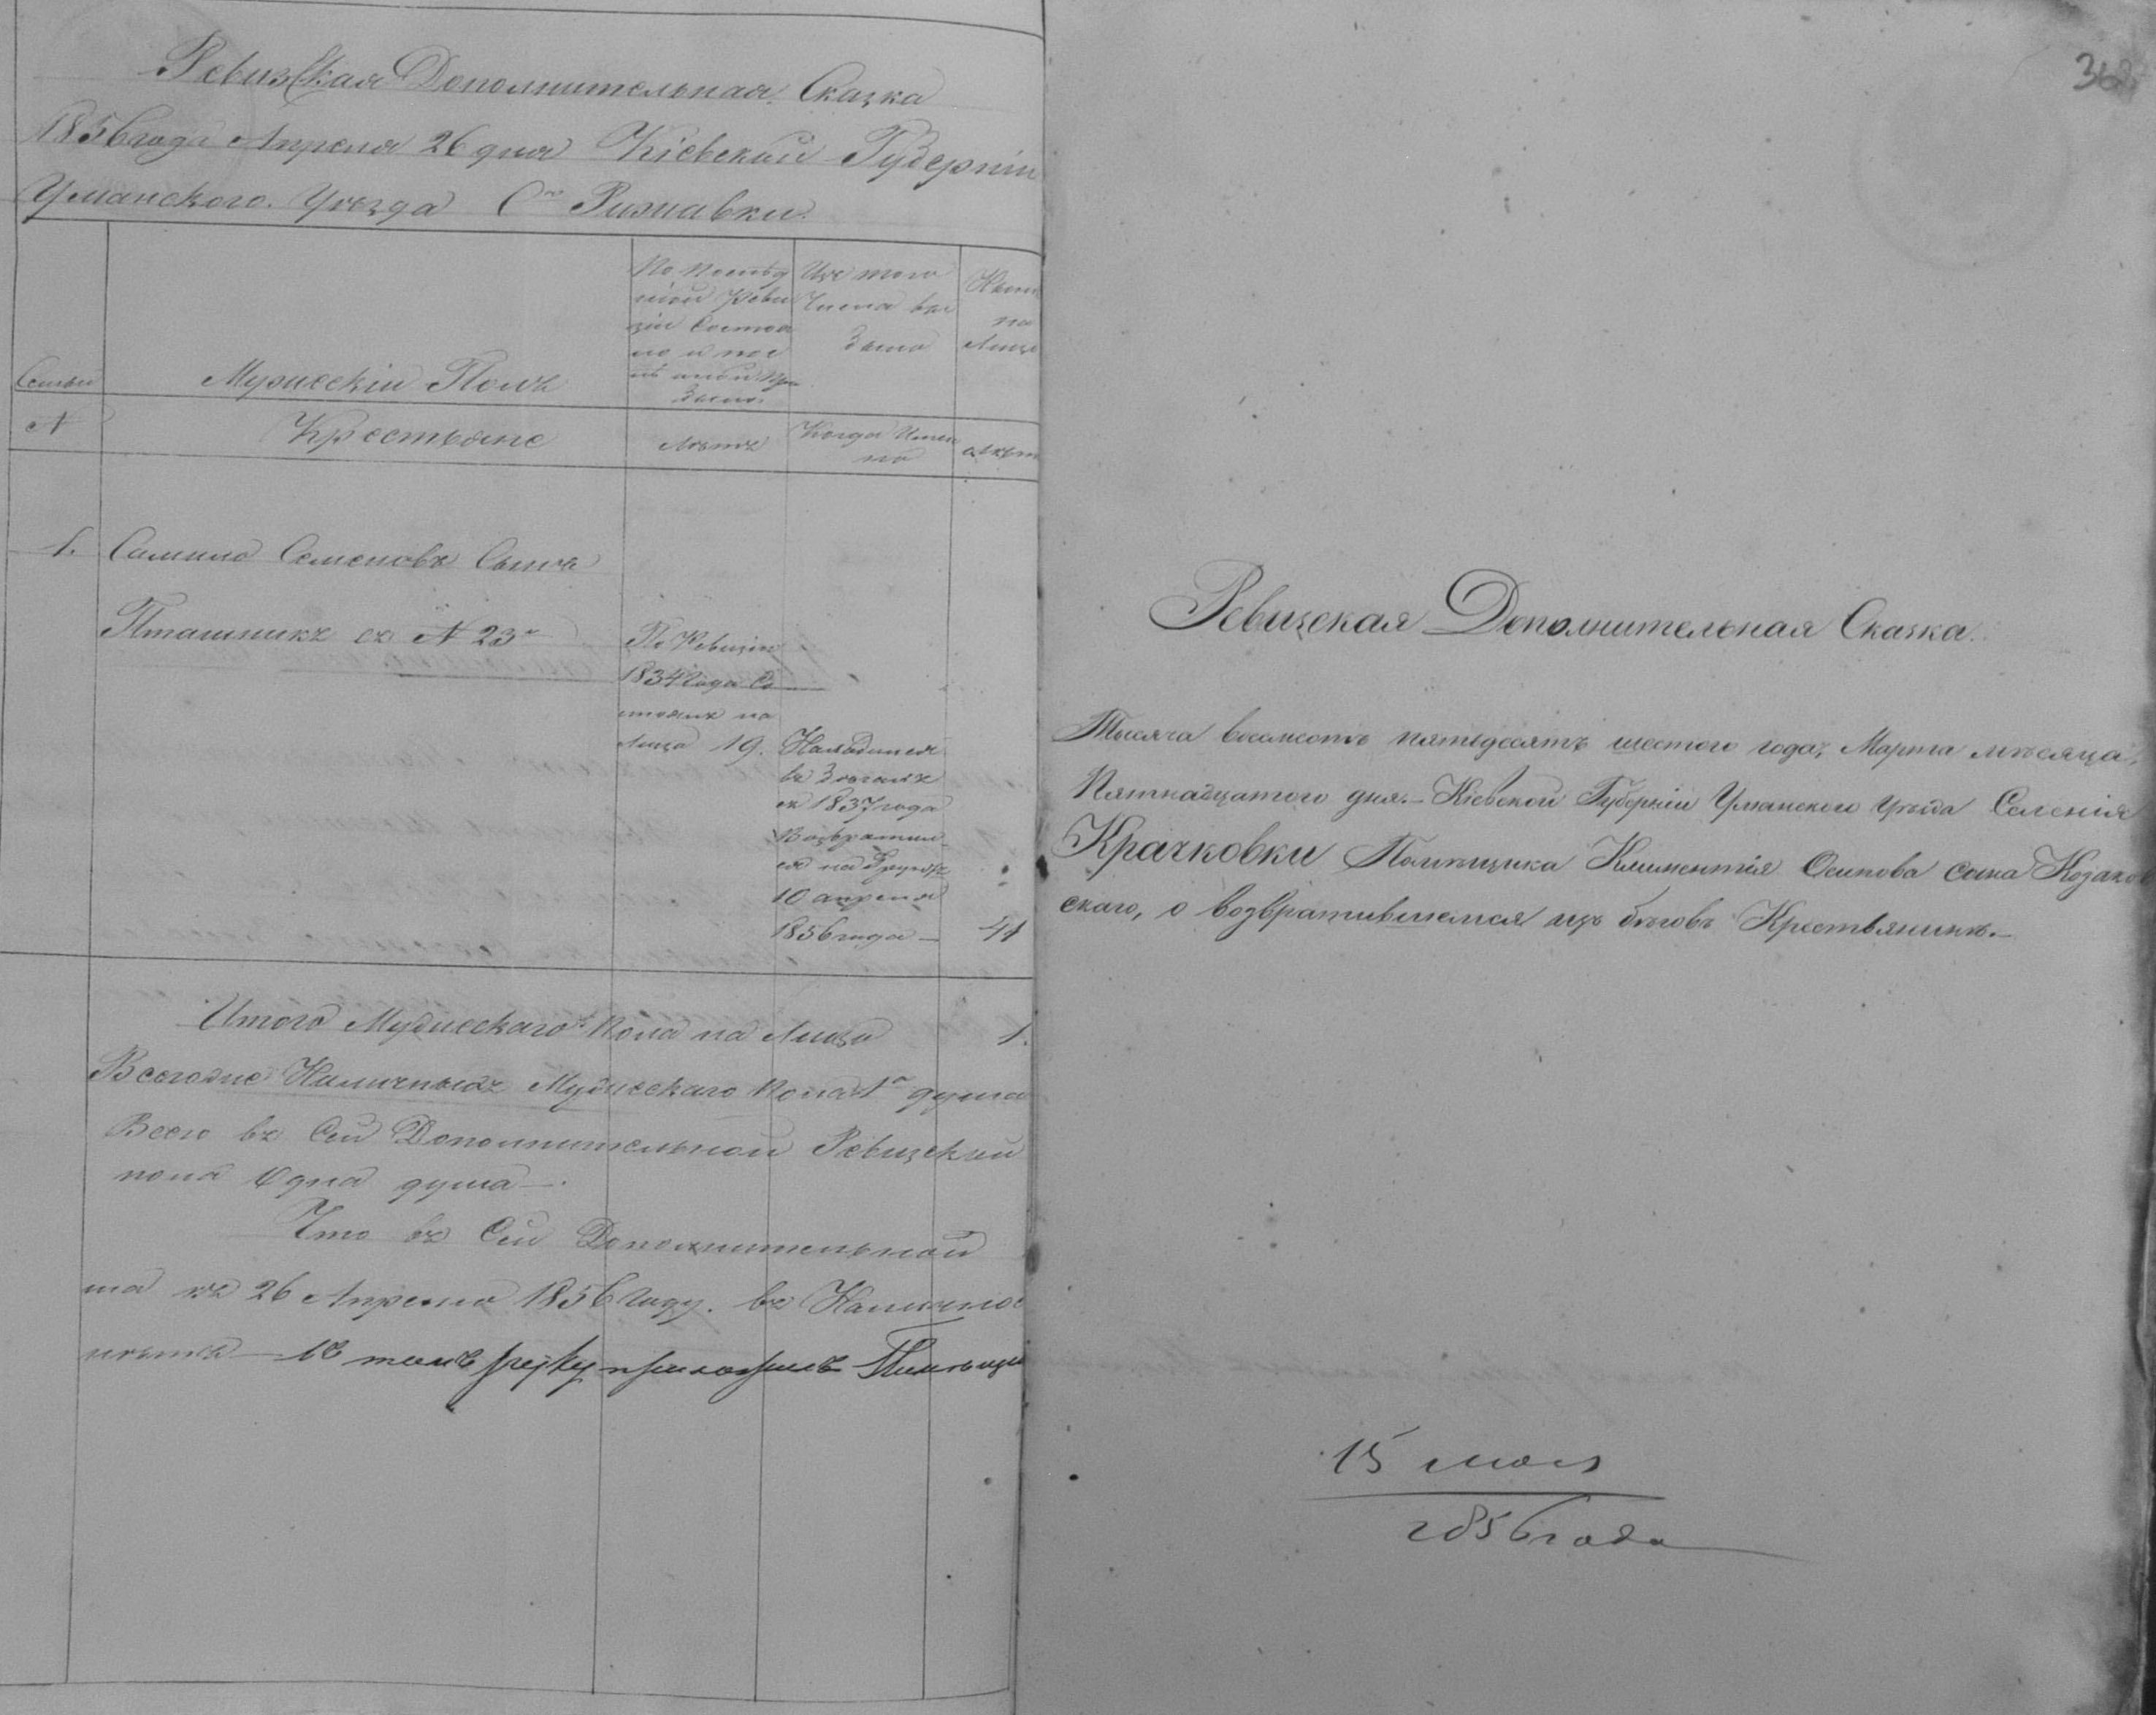 Ревизская Дополнительная Сказка
1856 года Апреля 26 дня Кіевской Губерніи
Уманскаго Уезда Сло Рижавки.
По послѣд
ніой реви
зіи состоя
ло и пос
лѣ оной при
было
Изъ того
числа вы
было
Ныне
на
Лице
Семьи
Мужескій Полъ
N
Крестьяне
Лѣтъ
Когда Имен
но
Лѣт
1. Самило Семеновъ Сынъ
Пташникъ съ N 23го
По Ревизіи
1834 года Со
стоялъ на
Лицо 19.
Находился
въ Бѣгахъ
съ 1837 года
Возвратил
ся на
10 апреля
1856 года — 41
Итого Мужескаго Пола на Лицо 1.
Всегоже Наличныхъ Мужескаго Пола 1а душа
Всего въ Сей Дополнительной Ревизской
пола Одна душа —.
Что въ Сей Дополнительной
та къ 26 Апреля 1856 Году. въ
въ томъ руку приложилъ Помѣщи
362
Ревизская Дополнительная Сказка.
Тысяча восемсотъ пятьдесятъ шестого года, Марта мѣсяца,
Пятнадцатого дня. — Кіевской Губерніи Уманского Уѣзда Селенія
Крачковки Помѣщика Климентія Осипова сына Козаков
скаго, о возвратившемся изъ бѣговъ Крестьянинѣ. —
15 мая
1856 года